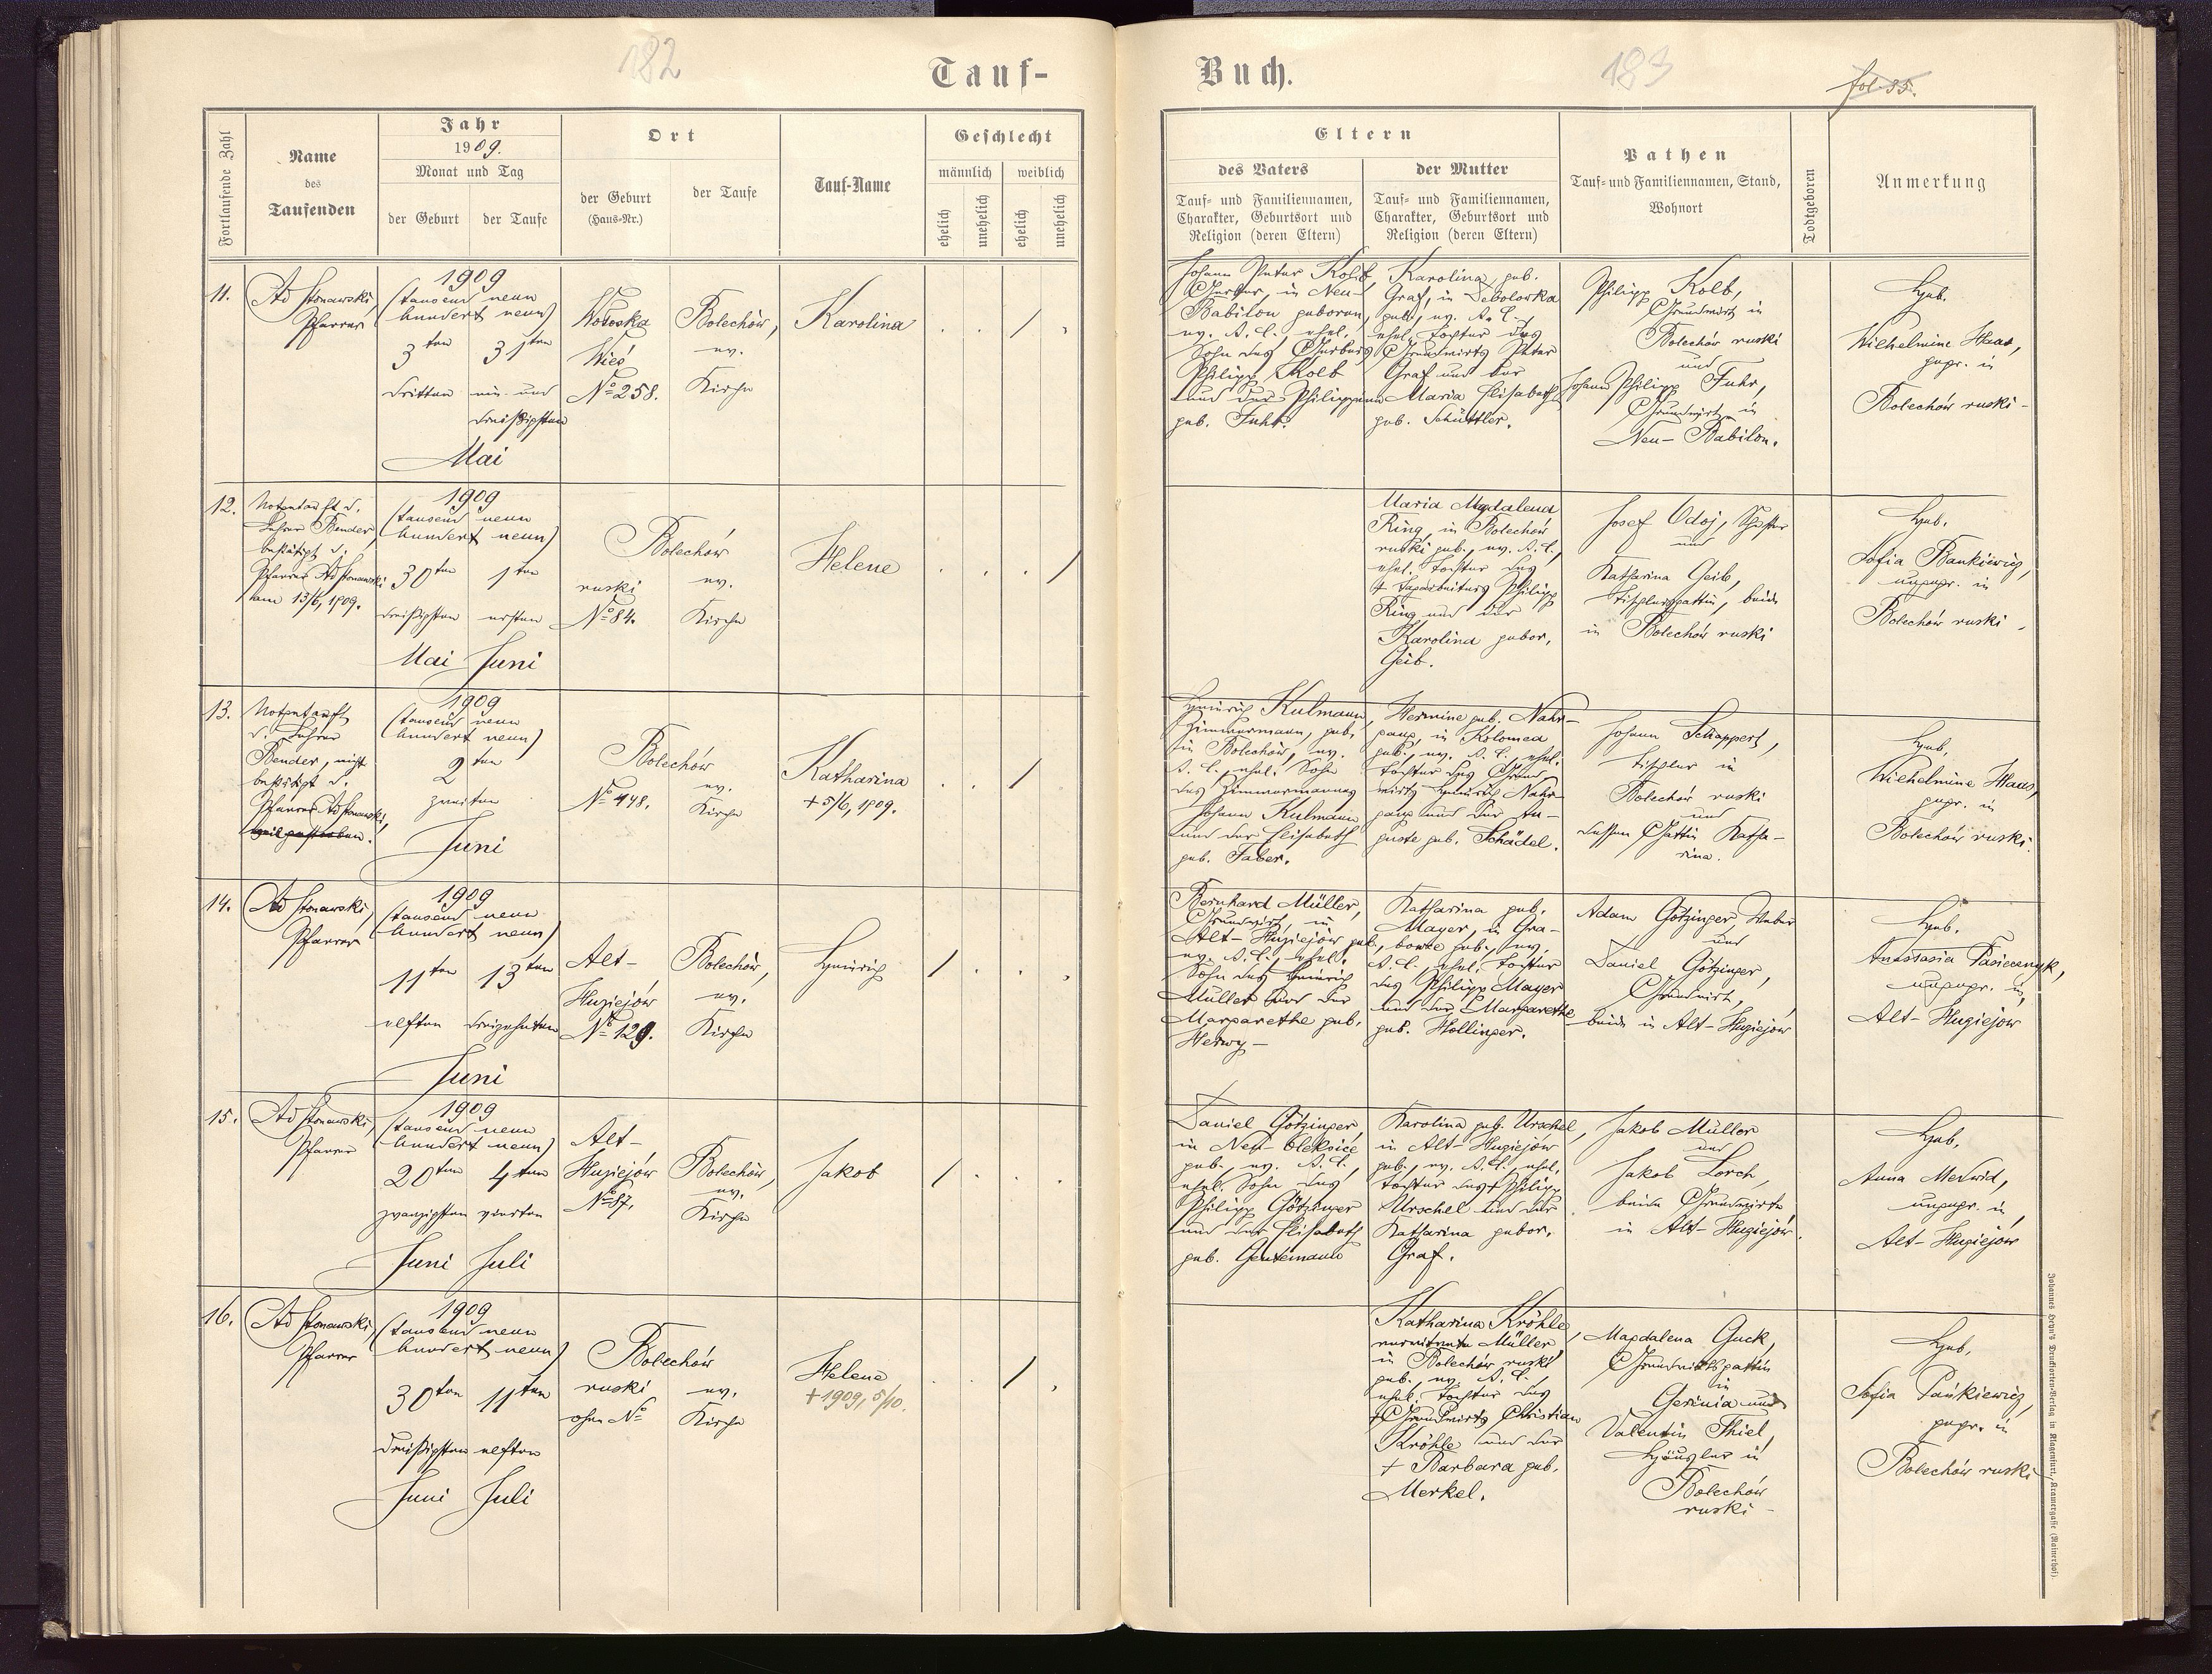 182
Tauf-
Fortlaufende Zahl
Name
des
Taufenden
Jahr
1909.
Monat und Tag
der Geburt
der Taufe
Ort
der Geburt
(Haus-Nr.)
der Taufe
Tauf-Name
Geschlecht
männlich
weiblich
ehelich
unehelich
ehelich
unehelich
11.
Ad Stonawski,
Pfarrer
1909
(tausend neun
hundert neun)
3ten
31ten
dritten
ein und
dreißigsten
Mai
Wołoska
Wieś
No 258.
Bolechów,
ev.
Kirche
Karolina
12.
Notgetauft d.
Lehrer Bender,
bestätigt d.
Pfarrer Ad Stonawski
am 13/6, 1909.
1909
(tausend neun
hundert neun)
30ten
1ten
dreißigsten
ersten
Mai
Juni
Bolechów
ruski
No 84.
ev.
Kirche
Helene
13.
Notgetauft
d. Lehrer
Bender, nicht
bestätigt d.
Pfarrer Ad Stonawski,
weil gestorben.
1909
(tausend neun
hundert neun)
2ten
zweiten
Juni
Bolechów
No 448.
ev.
Kirche
Katharina
+ 5/6, 1909.
14.
Ad Stonawski,
Pfarrer
1909
(tausend neun
hundert neun)
11ten
13ten
elften
dreizehnten
Juni
Alt-
Huziejów
No 129.
Bolechów,
ev.
Kirche
Heinrich
15.
Ad Stonawski,
Pfarrer
1909
(tausend neun
hundert neun)
20ten
4ten
zwanzigsten
vierten
Juni
Juli
Alt-
Huziejów
No 87.
Bolechów,
ev.
Kirche
Jakob
16.
Ad Stonawski,
Pfarrer
1909
(tausend neun
hundert neun)
30ten
11ten
dreißigsten
elften
Juni
Juli
Bolechów
ruski
ohne No
ev.
Kirche
Helene
+ 1909, 5/10.
Buch.
183
fol. 35.
Eltern
des Vaters
Tauf- und Familiennamen,
Charakter, Geburtsort und
Religion (deren Eltern)
der Mutter
Tauf- und Familiennamen,
Charakter, Geburtsort und
Religion (deren Eltern)
Pathen
Tauf- und Familiennamen, Stand,
Wohnort
Todtgeboren
Anmerkung
Johann Peter Kolb,
Gerber, in Neu-
Babilon geboren,
ev. A. C., ehel.
Sohn des Gerbers
Philipp Kolb
und der Philippina
geb. Fuhr.
Karolina geb.
Graf, in Debolówka
geb., ev. A. C.,
ehel. Tochter des
Grundwirts Peter
Graf und der
Maria Elisabeth
geb. Schüttler.
Philipp Kolb,
Grundwirt in
Bolechów ruski
und
Johann Philipp Fuhr,
Grundwirt in
Neu-Babilon.
Heb.
Wilhelmine Haas,
gepr. in
Bolechów ruski -
Maria Magdalena
Ring, in Bolechów
ruski geb., ev. A. C.,
ehel. Tochter des
+ Tagarbeiters Philipp
Ring und der
Karolina gebor.
Geib.
Josef Odoj, Schuster
und
Katharina Geib,
Tischlersgattin, beide
in Bolechów ruski
Heb.
Sofia Bankiewicz,
ungepr. in
Bolechów ruski -
Heinrich Kulmann,
Zimmermann, geb.
in Bolechów, ev.
A. C., ehel. Sohn
des Zimmermannes
Johann Kulmann
und der Elisabeth
geb. Faber.
Hermine geb. Nahr-
gang, in Kolomea
geb., ev. A. C., ehel.
Tochter des Grund-
wirts Heinrich Nahr-
gang und der Au-
guste geb. Schädel.
Johann Schappert,
Tischler in
Bolechów ruski
und
dessen Gattin Katha-
rina.
Heb.
Wilhelmine Haas,
gepr. in
Bolechów ruski.
Bernhard Müller,
Grundwirt, in
Alt-Huziejów geb.,
ev. A. C., ehel.
Sohn des Heinrich
Müller und der
Margarethe geb.
Herwy -
Katharina geb.
Mayer, in Gra-
bowce geb., ev.
A. C., ehel. Tochter
des Philipp Mayer
und der Margarethe
geb. Hollinger.
Adam Götzinger, Weber
und
Daniel Götzinger,
Grundwirt,
beide in Alt-Huziejów
Heb.
Anastasia Pasiecznyk,
ungepr. in
Alt-Huziejów
Daniel Götzinger,
in Neu-Oleksice
geb., ev. A. C.,
ehel. Sohn des
Philipp Götzinger
und der Elisabeth
geb. Gentemann
Karolina geb. Urschel,
in Alt-Huziejów
geb., ev. A. C., ehel.
Tochter des + Philipp
Urschel und der
Katharina gebor.
Graf.
Jakob Müller
und
Jakob Lorch,
beide Grundwirte
in Alt-Huziejów.
Heb.
Anna Medwid,
ungepr. in
Alt-Huziejów
Katharina Kröhle,
verwitwete Müller
in Bolechów ruski
geb., ev. A. C.,
ehel. Tochter des
+ Grundwirts Christian
Kröhle und der
+ Barbara geb.
Merkel.
Magdalena Guck,
Grundwirtsgattin
in
Gerinia und
Valentin Thiel,
Häusler in
Bolechów
ruski -
Heb.
Sofia Pańkiewicz,
gepr. in
Bolechów ruski
Johannes Heyn's Drucksorten-Verlag in Klagenfurt, Kramergasse (Rainerhof).